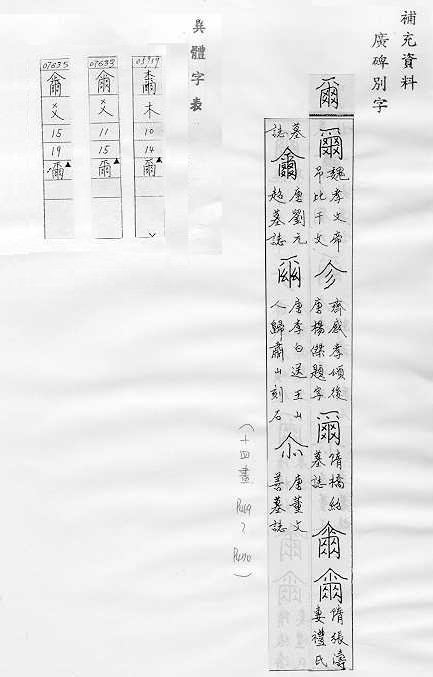 補充資料
廣碑別字
爾
爾 魏孝文帝
弔比干文
尒 齊感孝頌後
唐楊傑題字
爾 隋橋紹
墓誌
隋張濤
妻禮氏
墓
誌
唐劉元
超墓誌
爾 唐李白送王山
人歸肅山刻石
唐董文
善墓誌
(十四畫
P469
P470)
異體字表
05959
木
10
14
爾
07633
爻
11
15
爾
07635
爻
15
19